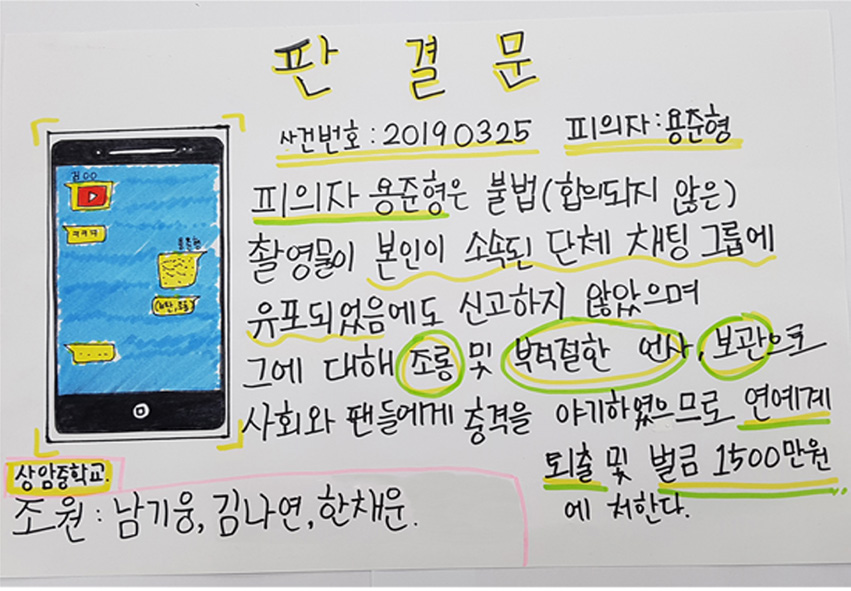 판 결 문
사건번호 : 20190325 피의자 : 용준형
피의자 용준형은 불법(합의되지 않은)
촬영물이 본인이 소속된 단체 채팅 그룹에
유포되었음에도 신고하지 않았으며
그에 대해 조롱 및 부적절한 언사, 보관으로
사회와 팬들에게 충격을 야기하였으므로 연예계
퇴출 및 벌금 1500만원
에 처한다.
김○○
ㅋㅋㅋ
용준형
상암중학교
조원 : 남기웅, 김나연, 한채운.